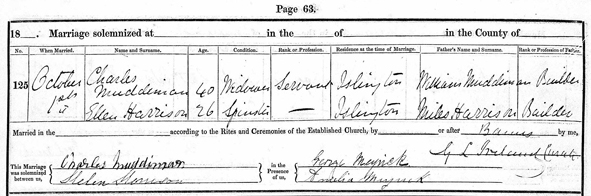 Page 63.
18 . Marriage solemnized at in the of in the County of
No. When Married. Name and Surname. Age. Condition. Rank or Profession. Residence at the time of Marriage. Father's Name and Surname. Rank or Profession of Father.
125 October 1st Charles Muddiman 40 Widower Servant Islington William Muddiman Builder
Ellen Harrison 26 Spinster — Islington Miles Harrison Builder
Married in the according to the Rites and Ceremonies of the Established Church, by or after Banns by me,
This Marriage was solemnized between us, Charles Muddiman in the Presence of us, George
Harrison Amelia Curate